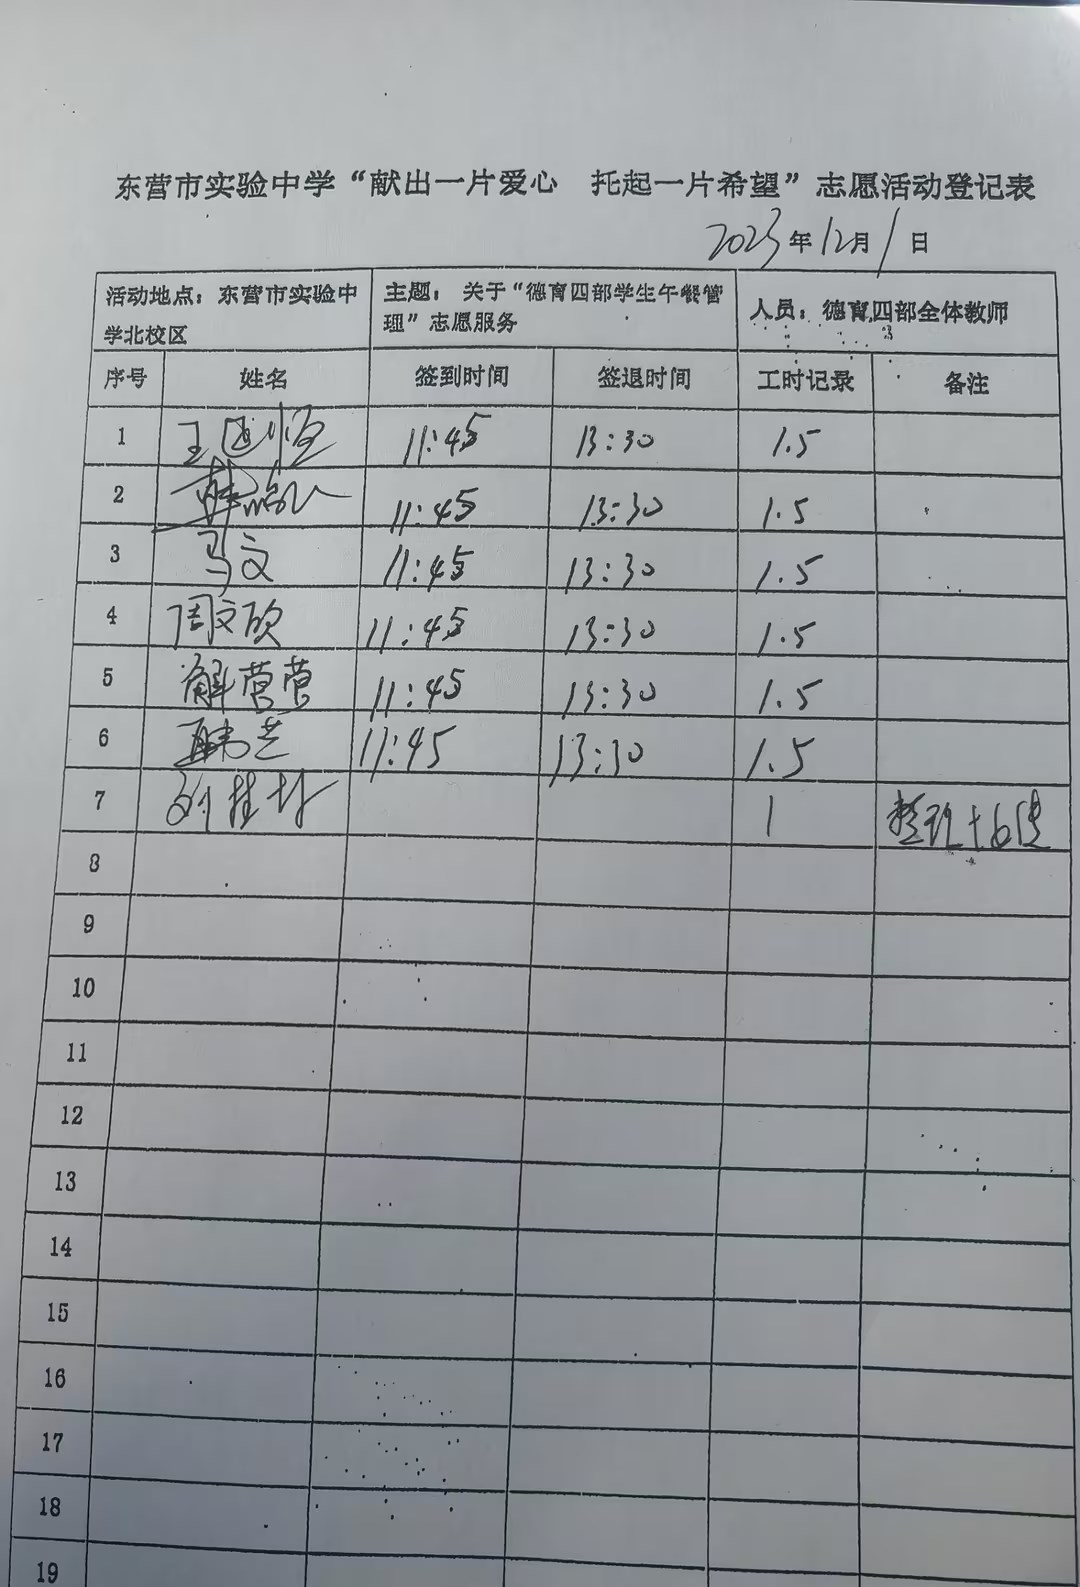 东营市实验中学“献出一片爱心 托起一片希望”志愿活动登记表
2023年12月1日
活动地点：东营市实验中学北校区 主题：关于“德育四部学生午餐管理”志愿服务 人员：德育四部全体教师
序号 姓名 签到时间 签退时间 工时记录 备注
1 11:45 13:30 1.5
2 11:45 13:30 1.5
3 马文 11:45 13:30 1.5
4 周文欣 11:45 13:30 1.5
5 解营营 11:45 13:30 1.5
6 韩芝 11:45 13:30 1.5
7 刘桂林 1 整理
8
9
10
11
12
13
14
15
16
17
18
19